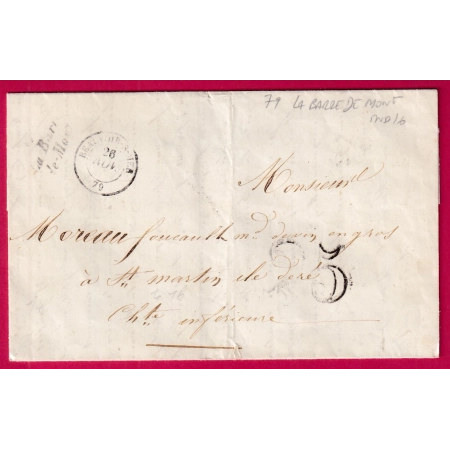 79 LA BARRE DE MONT
IND 16
la Barr
de-Mon
BEAUVOIR-S-MER
26
79
Monsieur
Moreau foucault md de vin en gros
à St martin ile de ré
Chte inférieure